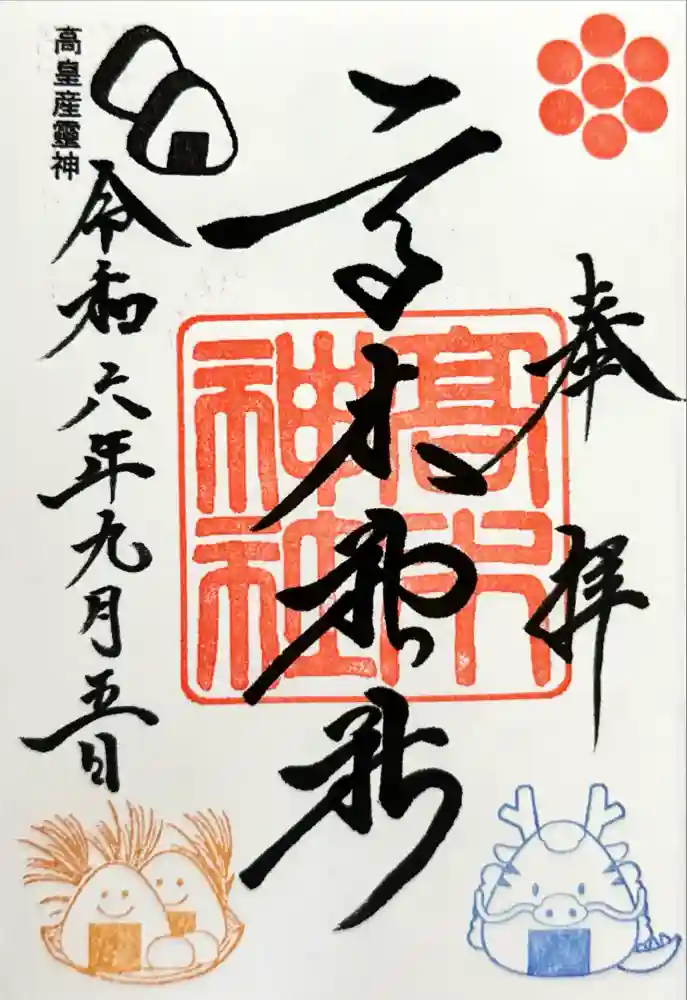 奉拝
高木神社
高木神社
令和六年九月五日
高皇産靈神